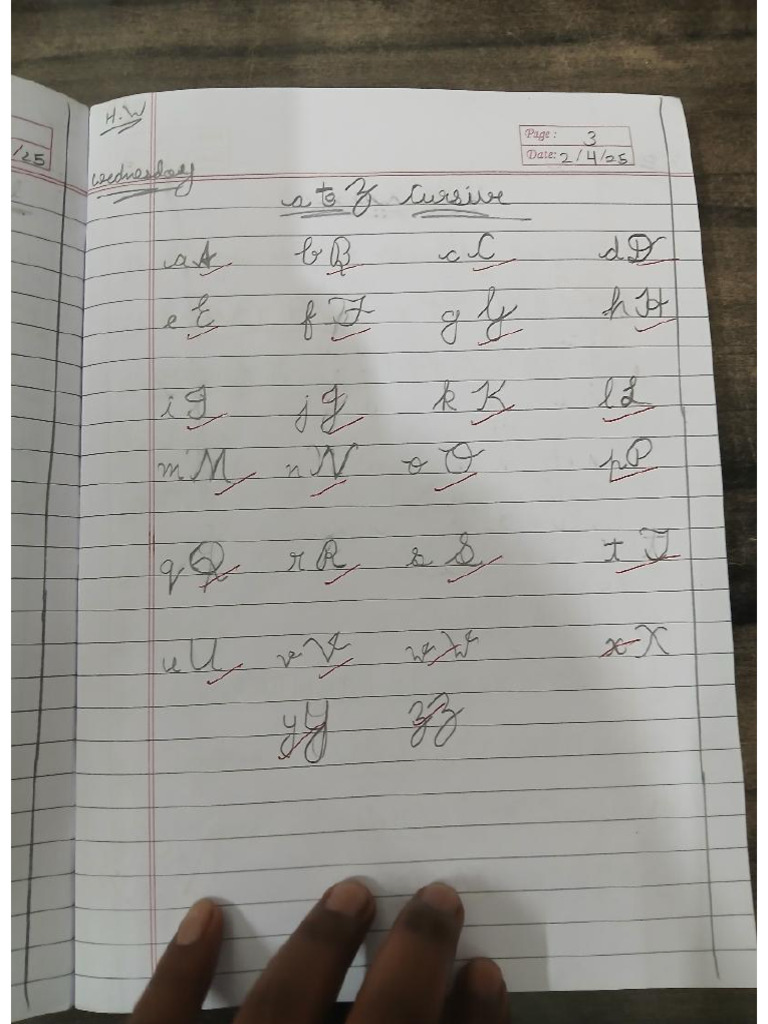 H.W
/25
Page: 3
Date: 2/4/25
wednesday
a to z Cursive
a A b B c C d D
e E f F g G h H
i I j J k K l L
m M n N o O p P
q Q r R s S t T
u U v V w W x X
y Y z Z